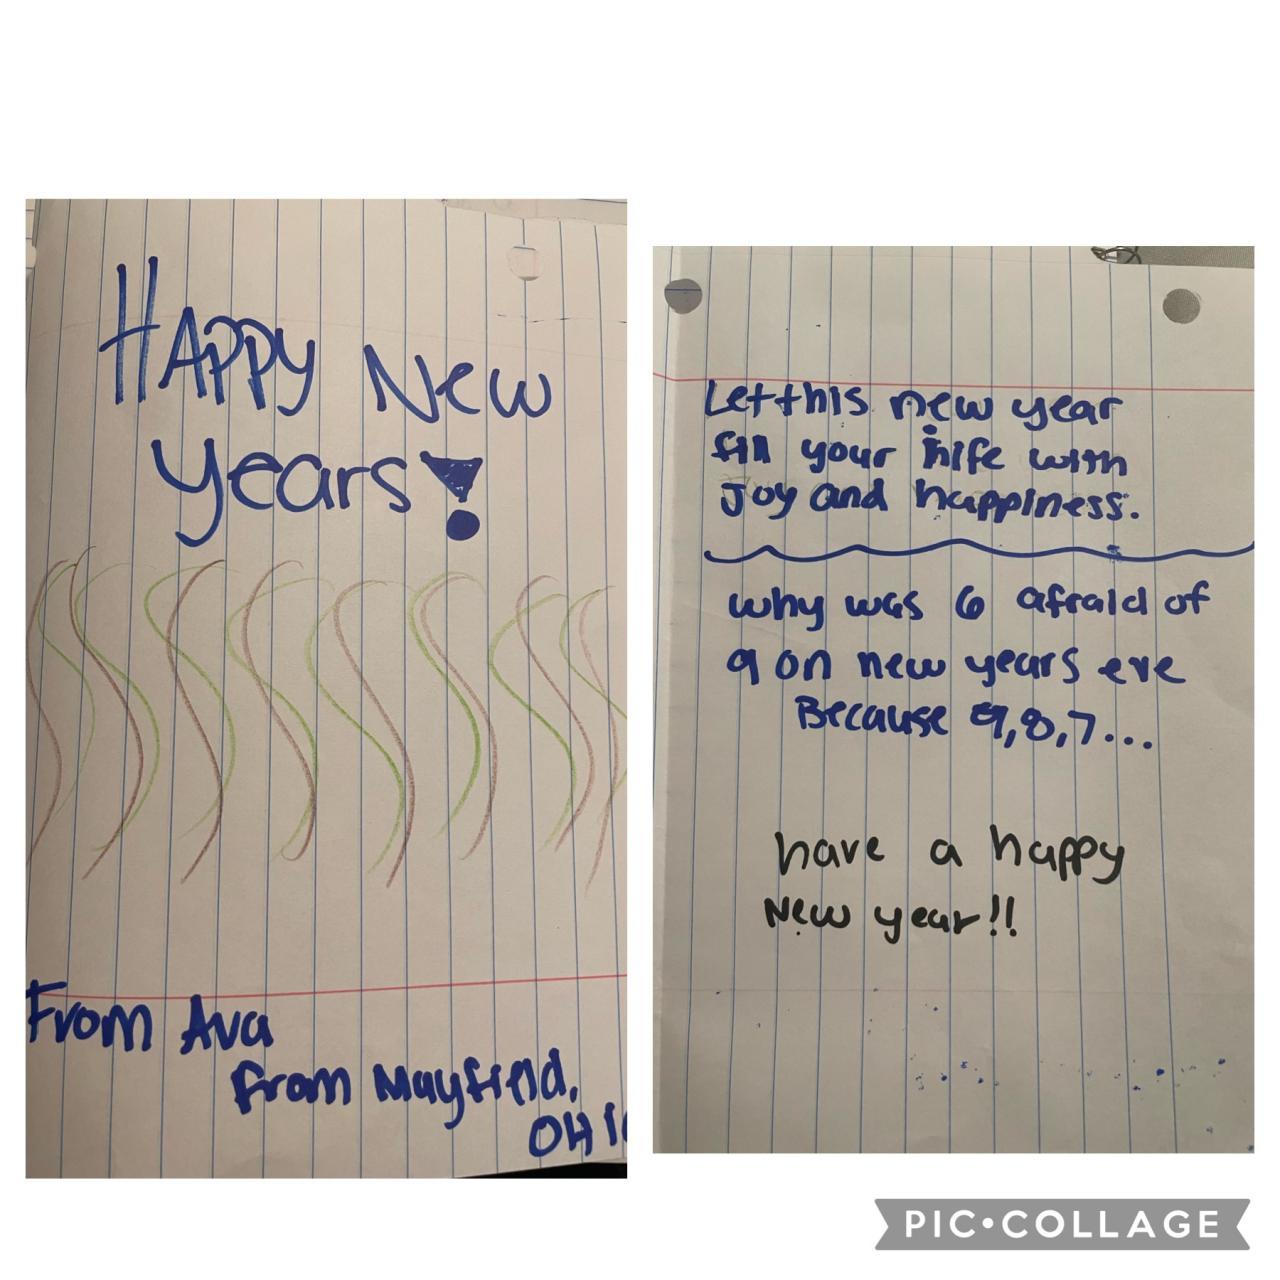 HAppy New
years!
From Ava
from Mayfield,
OHIO
Let this new year
fill your life with
Joy and happiness.
why was 6 afraid of
9 on new years eve
Because 9,8,7...
have a happy
New year!!
PIC•COLLAGE